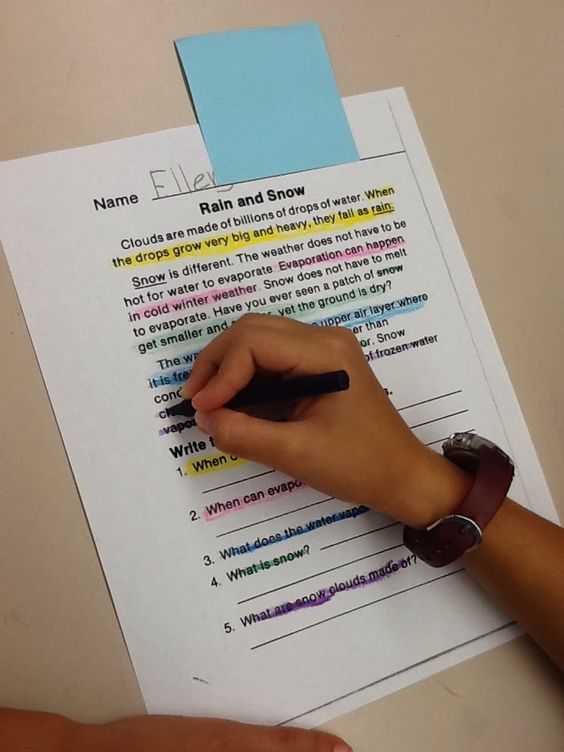 Name Ellery
Rain and Snow
Clouds are made of billions of drops of water. When
the drops grow very big and heavy, they fall as rain.
Snow is different. The weather does not have to be
hot for water to evaporate. Evaporation can happen
in cold winter weather. Snow does not have to melt
to evaporate. Have you ever seen a patch of snow
get smaller and yet the ground is dry?
The upper air layer where
it is than
Snow
of frozen water
Write
1. When
2. When can
3. What does the water
4. What is snow?
5. What are snow clouds made of?